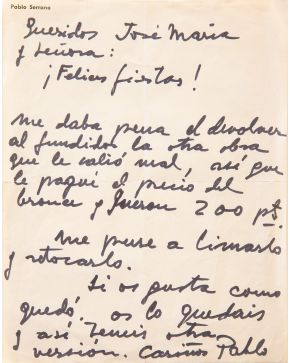 Pablo Serrano
Queridos José María
y Señora:
¡Felices fiestas!
me daba pena el devolver
al fundidor la otra obra
que le salió mal, así que
le pagué el precio del
bronce y fueron 200 pts.
me puse a limarlo
y retocarlo.
Si os gusta como
quedó, os lo quedais
y así teneis otra
versión. Cariños Pablo